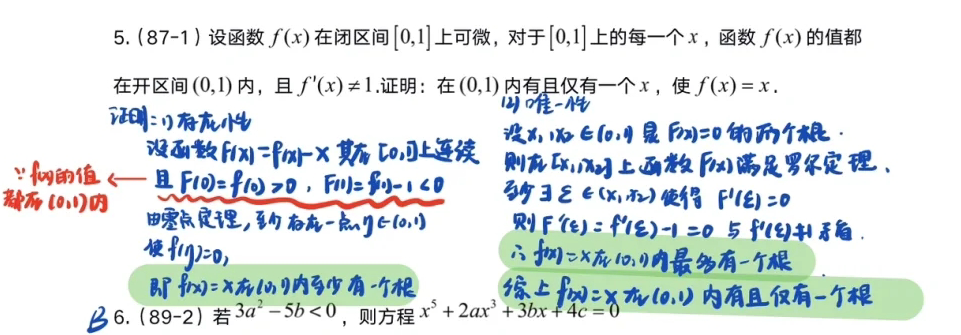 5. (87-1) 设函数 f(x) 在闭区间 [0,1] 上可微，对于 [0,1] 上的每一个 x，函数 f(x) 的值都
在开区间 (0,1) 内，且 f'(x)≠1.证明：在 (0,1) 内有且仅有一个 x，使 f(x)=x.
证明:(1) 存在性
设函数F(x)=f(x)-x 其在 [0,1]上连续
且 F(0)=f(0)>0，F(1)=f(1)-1<0
∵f(x)的值
都在(0,1)内
由零点定理，至少存在一点η∈(0,1)
使f(η)=0,
即 f(x)=x在(0,1)内至少有一个根
(2) 唯一性
设x₁,x₂∈(0,1)是F(x)=0的两个根.
则在[x₁,x₂]上函数F(x)满足罗尔定理.
至少∃ξ∈(x₁,x₂)使得 F'(ξ)=0
则F'(ξ)=f'(ξ)-1=0 与f'(ξ)≠1矛盾.
∴f(x)=x在(0,1)内最多有一个根
综上f(x)=x在(0,1)内有且仅有一个根
B 6. (89-2) 若 3a²-5b<0，则方程 x⁵+2ax³+3bx+4c=0